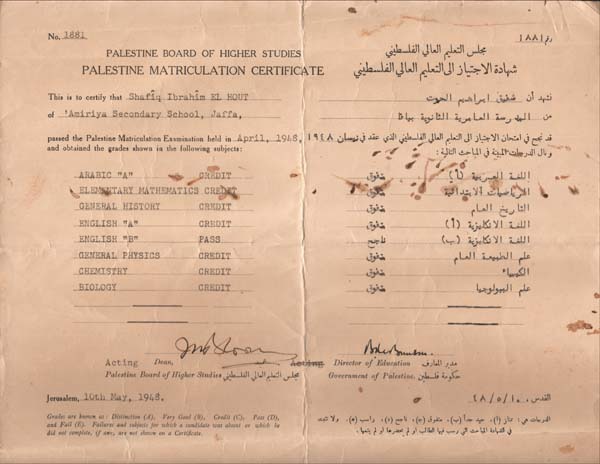 No. 1881
PALESTINE BOARD OF HIGHER STUDIES
PALESTINE MATRICULATION CERTIFICATE
This is to certify that Shafîq Ibrahîm EL HOUT
of 'Amiriya Secondary School, Jaffa,
passed the Palestine Matriculation Examination held in April, 1948,
and obtained the grades shown in the following subjects:
ARABIC "A" CREDIT
ELEMENTARY MATHEMATICS CREDIT
GENERAL HISTORY CREDIT
ENGLISH "A" CREDIT
ENGLISH "B" PASS
GENERAL PHYSICS CREDIT
CHEMISTRY CREDIT
BIOLOGY CREDIT
Acting Dean,
Palestine Board of Higher Studies مجلس التعليم العالي الفلسطيني
Jerusalem, 10th May, 1948.
Grades are known as: Distinction (A), Very Good (B), Credit (C), Pass (D),
and Fail (E). Failures and subjects for which a candidate was absent or which he
did not complete, if any, are not shown on a Certificate.
رقم ١٨٨١
مجلس التعليم العالي الفلسطيني
شهادة الاجتياز الى التعليم العالي الفلسطيني
نشهد أن شفيق ابراهيم الحوت
من المدرسة العامرية الثانوية بيافا
قد نجح في امتحان الاجتياز الى التعليم العالي الفلسطيني الذي عقد في نيسان ١٩٤٨
ونال الدرجات المبينة في المباحث التالية:
اللغة العربية (أ) متفوق
الرياضيات الابتدائية متفوق
التاريخ العام متفوق
اللغة الانكليزية (أ) متفوق
اللغة الانكليزية (ب) ناجح
علم الطبيعة العام متفوق
الكيمياء متفوق
علم البيولوجيا متفوق
Acting Director of Education مدير المعارف
Government of Palestine. حكومة فلسطين
القدس، ٤٨/٥/١٠
الدرجات هي: ممتاز (أ)، جيد جداً (ب)، متفوق (ج)، ناجح (د)، راسب (ه)، ولا تثبت
في الشهادة المباحث التي رسب فيها الطالب او لم يحضرها او لم يتمها.